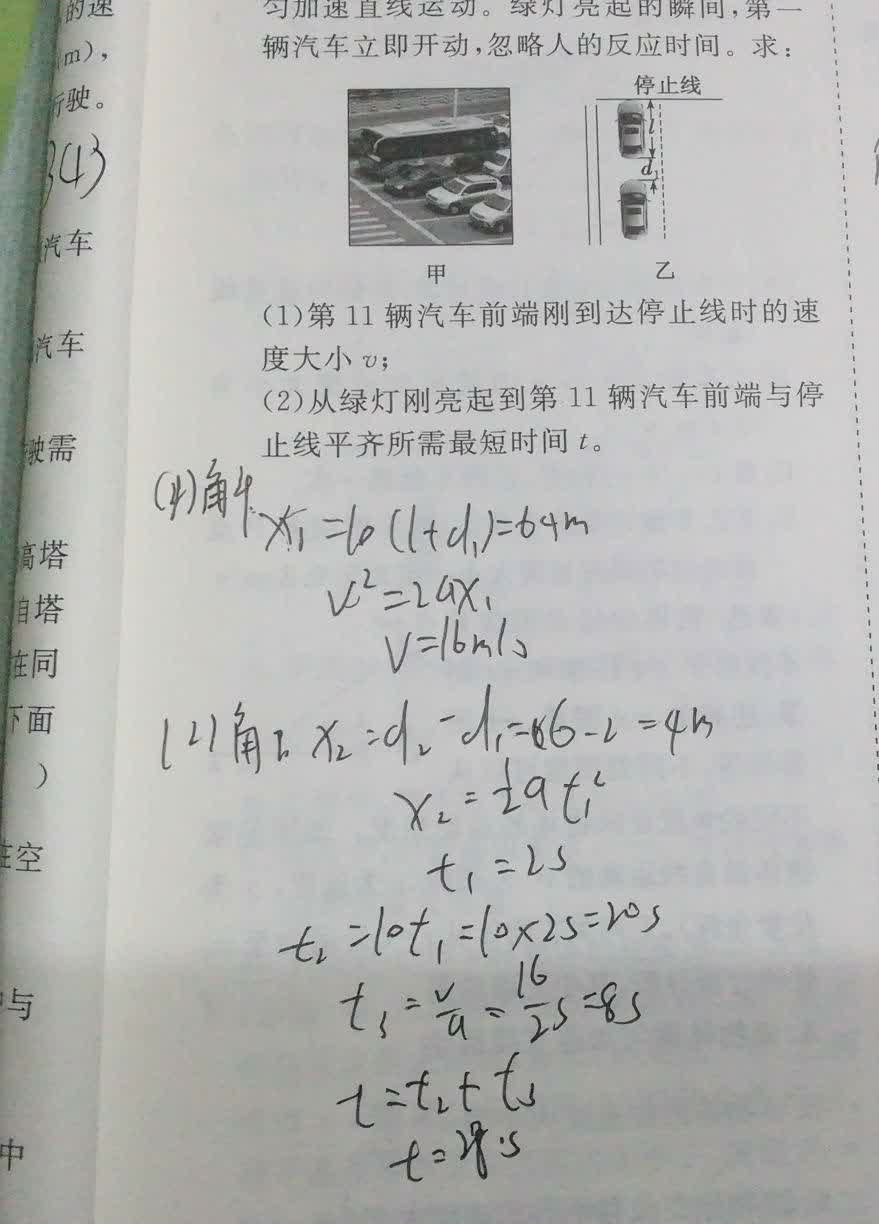 的速
m),
行驶。
3(4)
汽车
汽车
驶需
高塔
自塔
在同
下面
)
在空
与
中
匀加速直线运动。绿灯亮起的瞬间,第一
辆汽车立即开动,忽略人的反应时间。求:
停止线
l
d₁
甲
乙
(1)第 11 辆汽车前端刚到达停止线时的速
度大小 v;
(2)从绿灯刚亮起到第 11 辆汽车前端与停
止线平齐所需最短时间 t。
解
x₁=10(l+d₁)=64m
v²=2ax₁
v=16m/s
(2)解 x₂=d₂-d₁=6-2=4m
x₂=½at₁²
t₁=2s
t₂=10t₁=10×2s=20s
t₃=v/a=16/2s=8s
t=t₂+t₃
t=28s